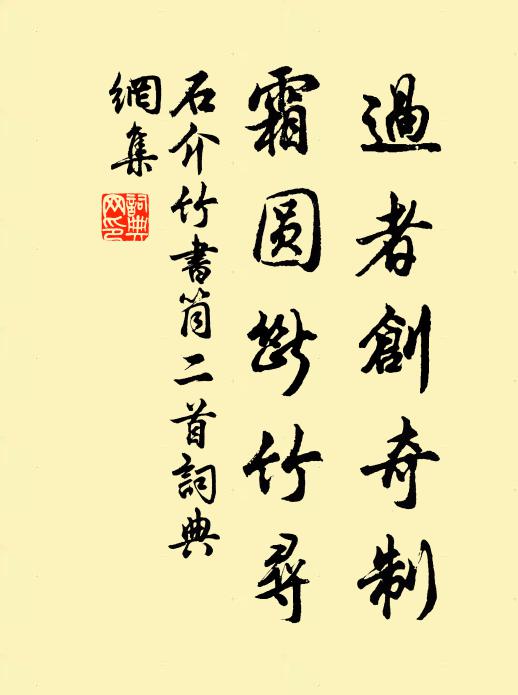 過者創奇制
霜圓斷竹尋
石介竹書筒二首詞典
網集
詞典
网印